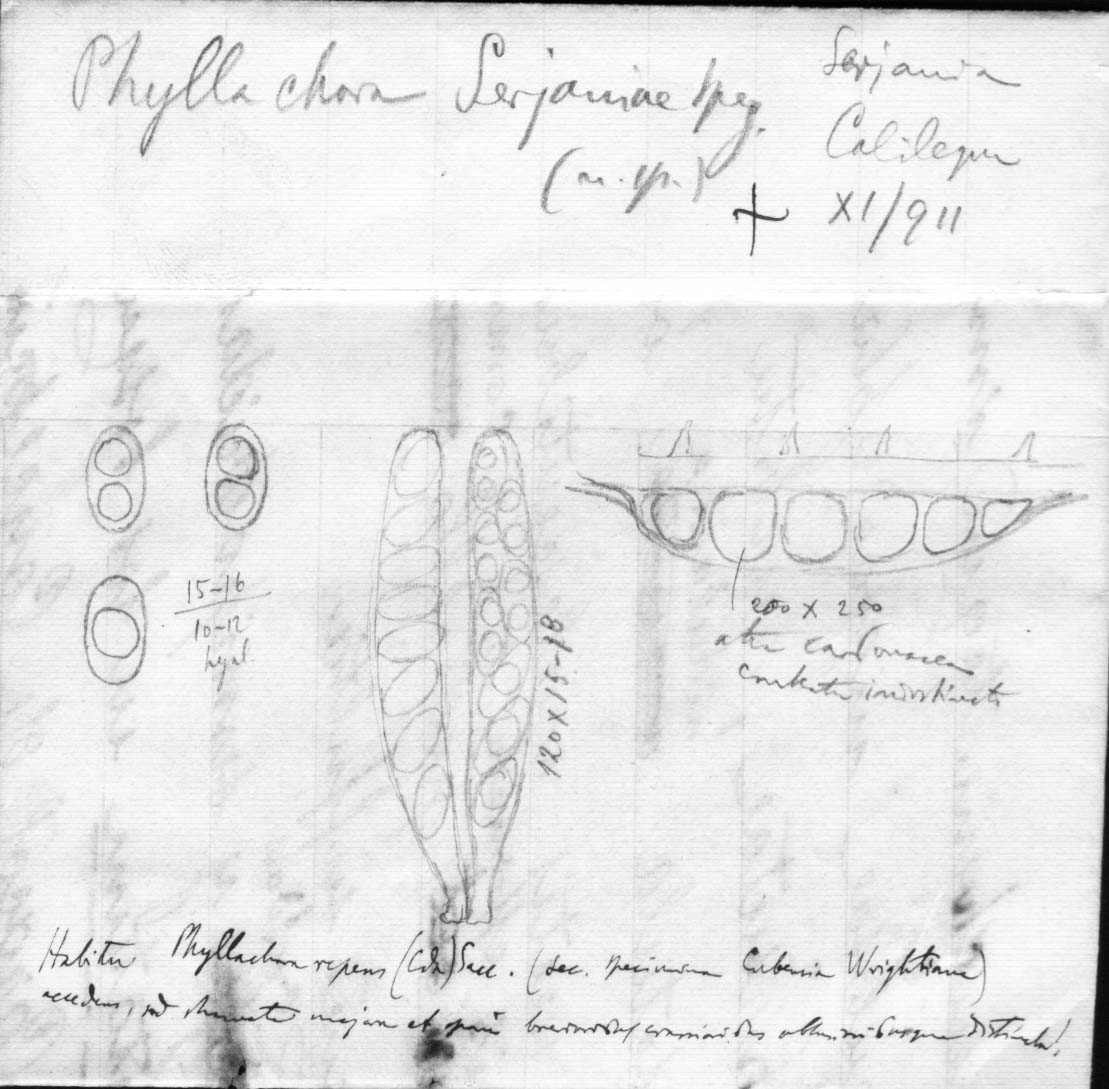 Phyllachora Serjaniae Speg.
(n. sp.)
Serjania
Calilegua
XI/911
15-16
10-12
hyal.
120 x 15-18
200 x 250
atra carbonacea
contextu indistincto
Habitu Phyllachora repens (Cda) Sacc. (sec. specimina Cubensia Wrightiana)
accedens, sed stromate majore et sporis crassioribus obtusioribusque distincta!